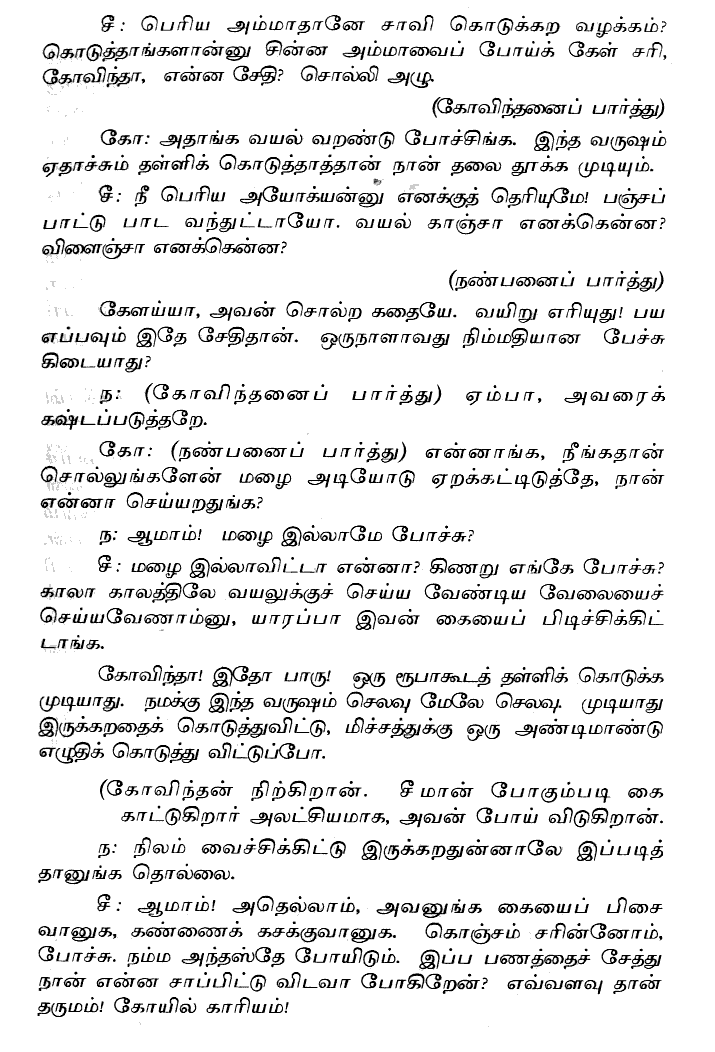 சீ: பெரிய அம்மாதானே சாவி கொடுக்கற வழக்கம்?
கொடுத்தாங்களான்னு சின்ன அம்மாவைப் போய்க் கேள் சரி,
கோவிந்தா, என்ன சேதி? சொல்லி அழு.
(கோவிந்தனைப் பார்த்து)
கோ: அதாங்க வயல் வறண்டு போச்சிங்க. இந்த வருஷம்
ஏதாச்சும் தள்ளிக் கொடுத்தாத்தான் நான் தலை தூக்க முடியும்.
சீ: நீ பெரிய அயோக்யன்னு எனக்குத் தெரியுமே! பஞ்சப்
பாட்டு பாட வந்துட்டாயோ. வயல் காஞ்சா எனக்கென்ன?
விளைஞ்சா எனக்கென்ன?
(நண்பனைப் பார்த்து)
கேளய்யா, அவன் சொல்ற கதையே. வயிறு எரியுது! பய
எப்பவும் இதே சேதிதான். ஒருநாளாவது நிம்மதியான பேச்சு
கிடையாது?
ந: (கோவிந்தனைப் பார்த்து) ஏம்பா, அவரைக்
கஷ்டப்படுத்தறே.
கோ: (நண்பனைப் பார்த்து) என்னாங்க, நீங்கதான்
சொல்லுங்களேன் மழை அடியோடு ஏறக்கட்டிடுத்தே, நான்
என்னா செய்யறதுங்க?
ந: ஆமாம்! மழை இல்லாமே போச்சு?
சீ: மழை இல்லாவிட்டா என்னா? கிணறு எங்கே போச்சு?
காலா காலத்திலே வயலுக்குச் செய்ய வேண்டிய வேலையைச்
செய்யவேணாம்னு, யாரப்பா இவன் கையைப் பிடிச்சிக்கிட்
டாங்க.
கோவிந்தா! இதோ பாரு! ஒரு ரூபாகூடத் தள்ளிக் கொடுக்க
முடியாது. நமக்கு இந்த வருஷம் செலவு மேலே செலவு. முடியாது
இருக்கறதைக் கொடுத்துவிட்டு, மிச்சத்துக்கு ஒரு அண்டிமாண்டு
எழுதிக் கொடுத்து விட்டுப்போ.
(கோவிந்தன் நிற்கிறான். சீமான் போகும்படி கை
காட்டுகிறார் அலட்சியமாக, அவன் போய் விடுகிறான்.
ந: நிலம் வைச்சிக்கிட்டு இருக்கறதுன்னாலே இப்படித்
தானுங்க தொல்லை.
சீ: ஆமாம்! அதெல்லாம், அவனுங்க கையைப் பிசை
வானுக, கண்ணைக் கசக்குவானுக. கொஞ்சம் சரின்னோம்,
போச்சு. நம்ம அந்தஸ்தே போயிடும். இப்ப பணத்தைச் சேத்து
நான் என்ன சாப்பிட்டு விடவா போகிறேன்? எவ்வளவு தான்
தருமம்! கோயில் காரியம்!